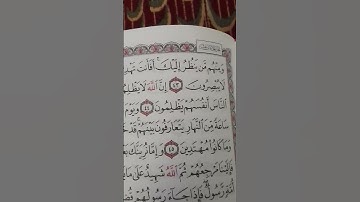 وَمِنْهُم مَّن يَنظُرُ إِلَيْكَ أَفَأَنتَ تَهْدِ
لَا يُبْصِرُونَ ٤٣ إِنَّ ٱللَّهَ لَا يَظْلِمُ
ٱلنَّاسَ أَنفُسَهُمْ يَظْلِمُونَ ٤٤ وَيَوْمَ
سَاعَةً مِّنَ ٱلنَّهَارِ يَتَعَارَفُونَ بَيْنَهُمْ قَدْ خَ
وَمَا كَانُوا۟ مُهْتَدِينَ ٤٥ وَإِمَّا نُرِيَنَّكَ بَعْ
فَإِلَيْنَا مَرْجِعُهُمْ ثُمَّ ٱللَّهُ شَهِيدٌ عَلَىٰ مَ
أُمَّةٍ رَّسُولٌ فَإِذَا جَآءَ رَسُولُهُمْ قُضِ